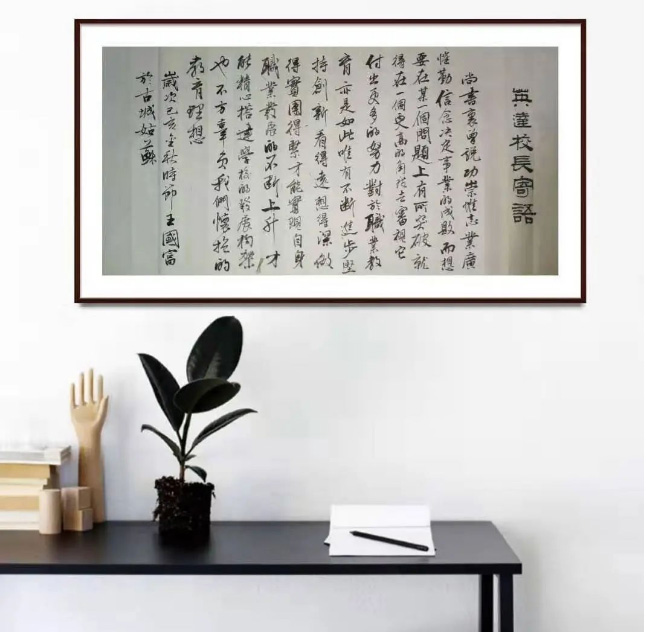 英達校長寄語
尚書裏曾說功崇惟志業廣
惟勤信念決定事業的成敗而想
要在某一個問題上有所突破就
得在一個更高的角度去審視它
付出更多的努力對於職業教
育亦是如此唯有不斷進步堅
持創新看得遠想得深做
得實團得緊才能實現自身
職業發展的不斷上升才
能精心搭建學校的發展構架
也不方辜負我們懷抱的
教育理想
歲次己亥金秋時節 王國富
於古城姑蘇